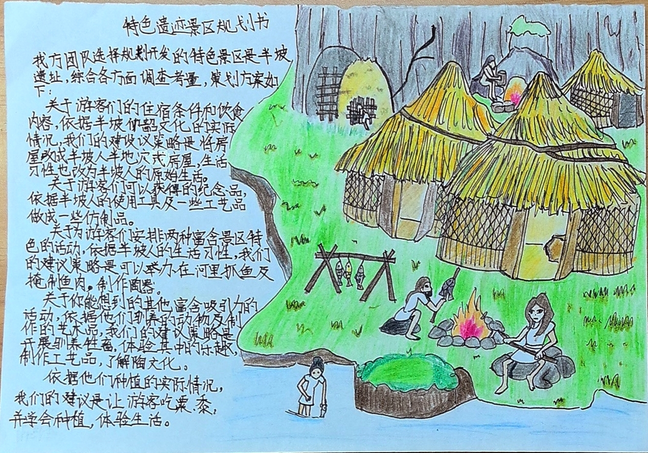 特色遗迹景区规划书
我方团队选择规划开发的特色景区是半坡
遗址,综合各方面调查考量,策划方案如
下:
关于游客们的住宿条件和饮食
内容,依据半坡仰韶文化的实际
情况,我们的建设议策略是将房
屋改成半坡人半地穴式房屋,生活
习性也改为半坡人的原始生活。
关于游客们可以获得的纪念品,
依据半坡人的使用工具及一些工艺品
做成一些仿制品。
关于为游客们安排两种富含景区特
色的活动,依据半坡人的生活习性,我们
的建议策略是可以举办在河里抓鱼及
腌制鱼肉。制作陶器。
关于你能想到的其他富含吸引力的
活动,依据他们驯养的动物及制
作的艺术品,我们的建议策略是
开展驯养牲畜,体验其中的乐趣,
制作工艺品,了解陶文化。
依据他们种植的实际情况,
我们的建议是让游客吃粟、黍,
并学会种植,体验生活。